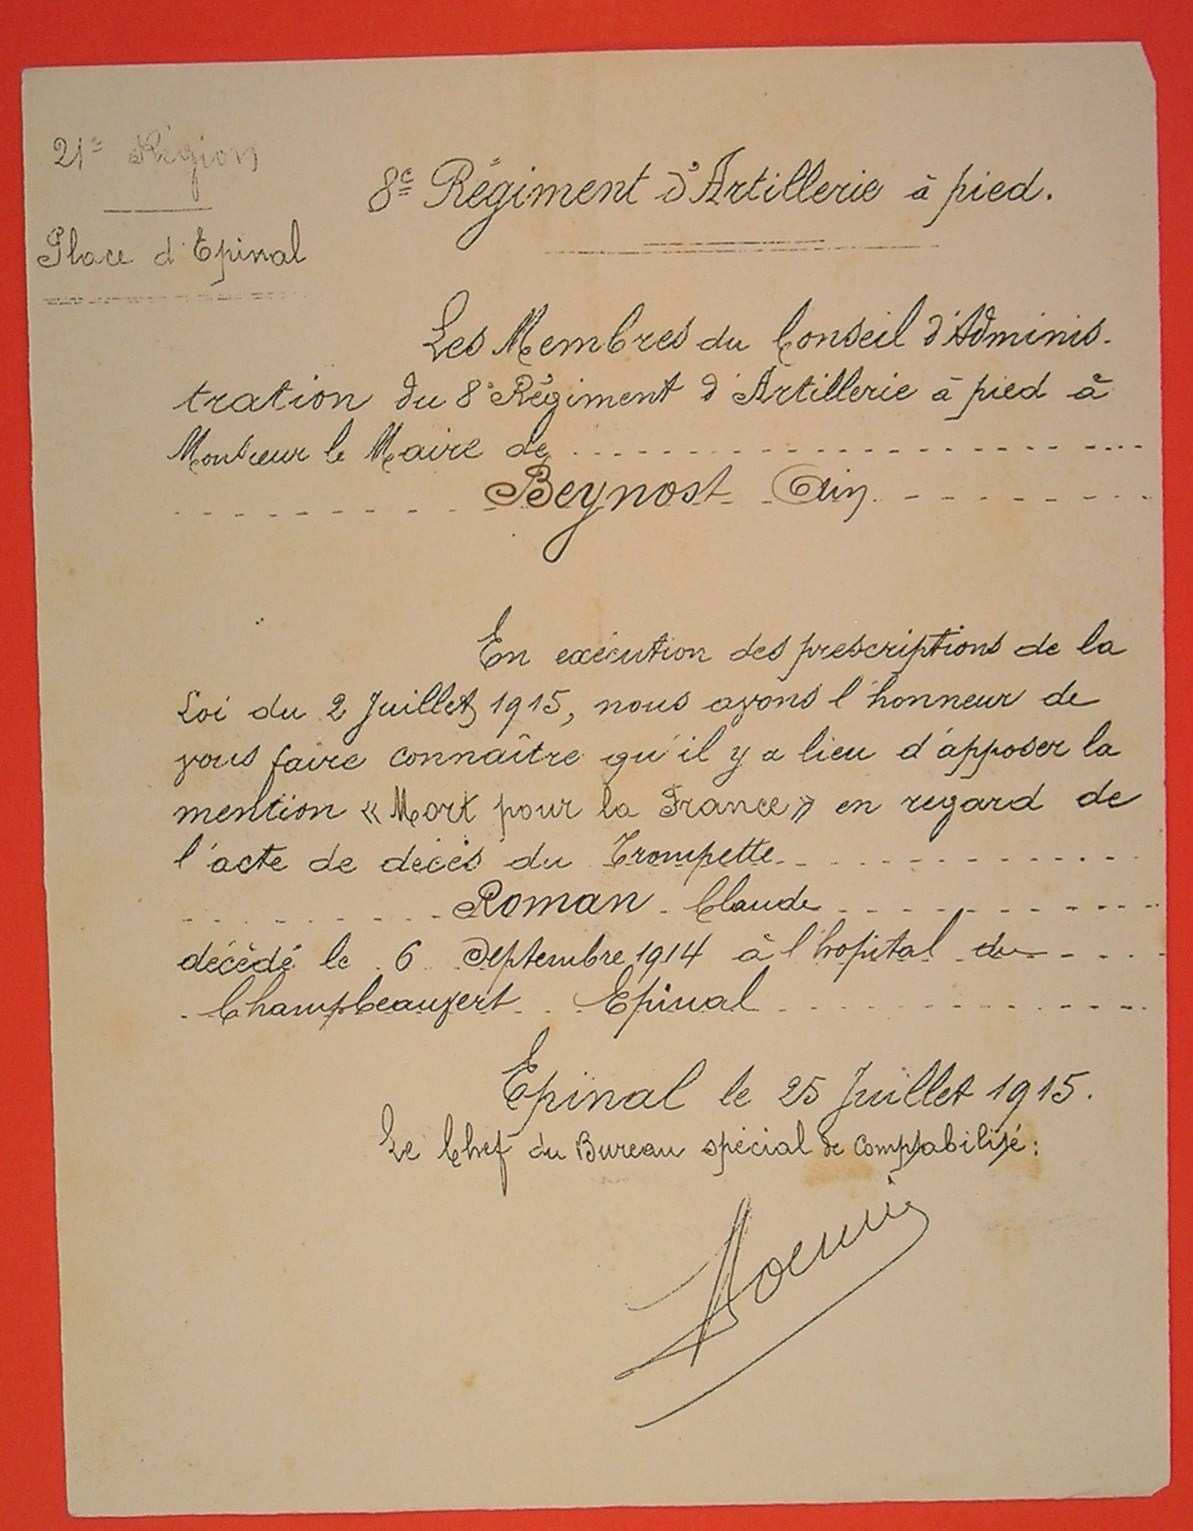 21e Région
Place d'Epinal
8e Régiment d'Artillerie à pied.
Les Membres du Conseil d'Adminis-
tration du 8e Régiment d'Artillerie à pied à
Monsieur le Maire de
Beynost Ain
En exécution des prescriptions de la
Loi du 2 Juillet 1915, nous avons l'honneur de
vous faire connaître qu'il y a lieu d'apposer la
mention « Mort pour la France » en regard de
l'acte de décès du Trompette
Roman Claude
décédé le 6 Septembre 1914 à l'hopital du
Champbeauvert Epinal
Epinal le 25 Juillet 1915.
Le Chef du Bureau spécial de comptabilité :